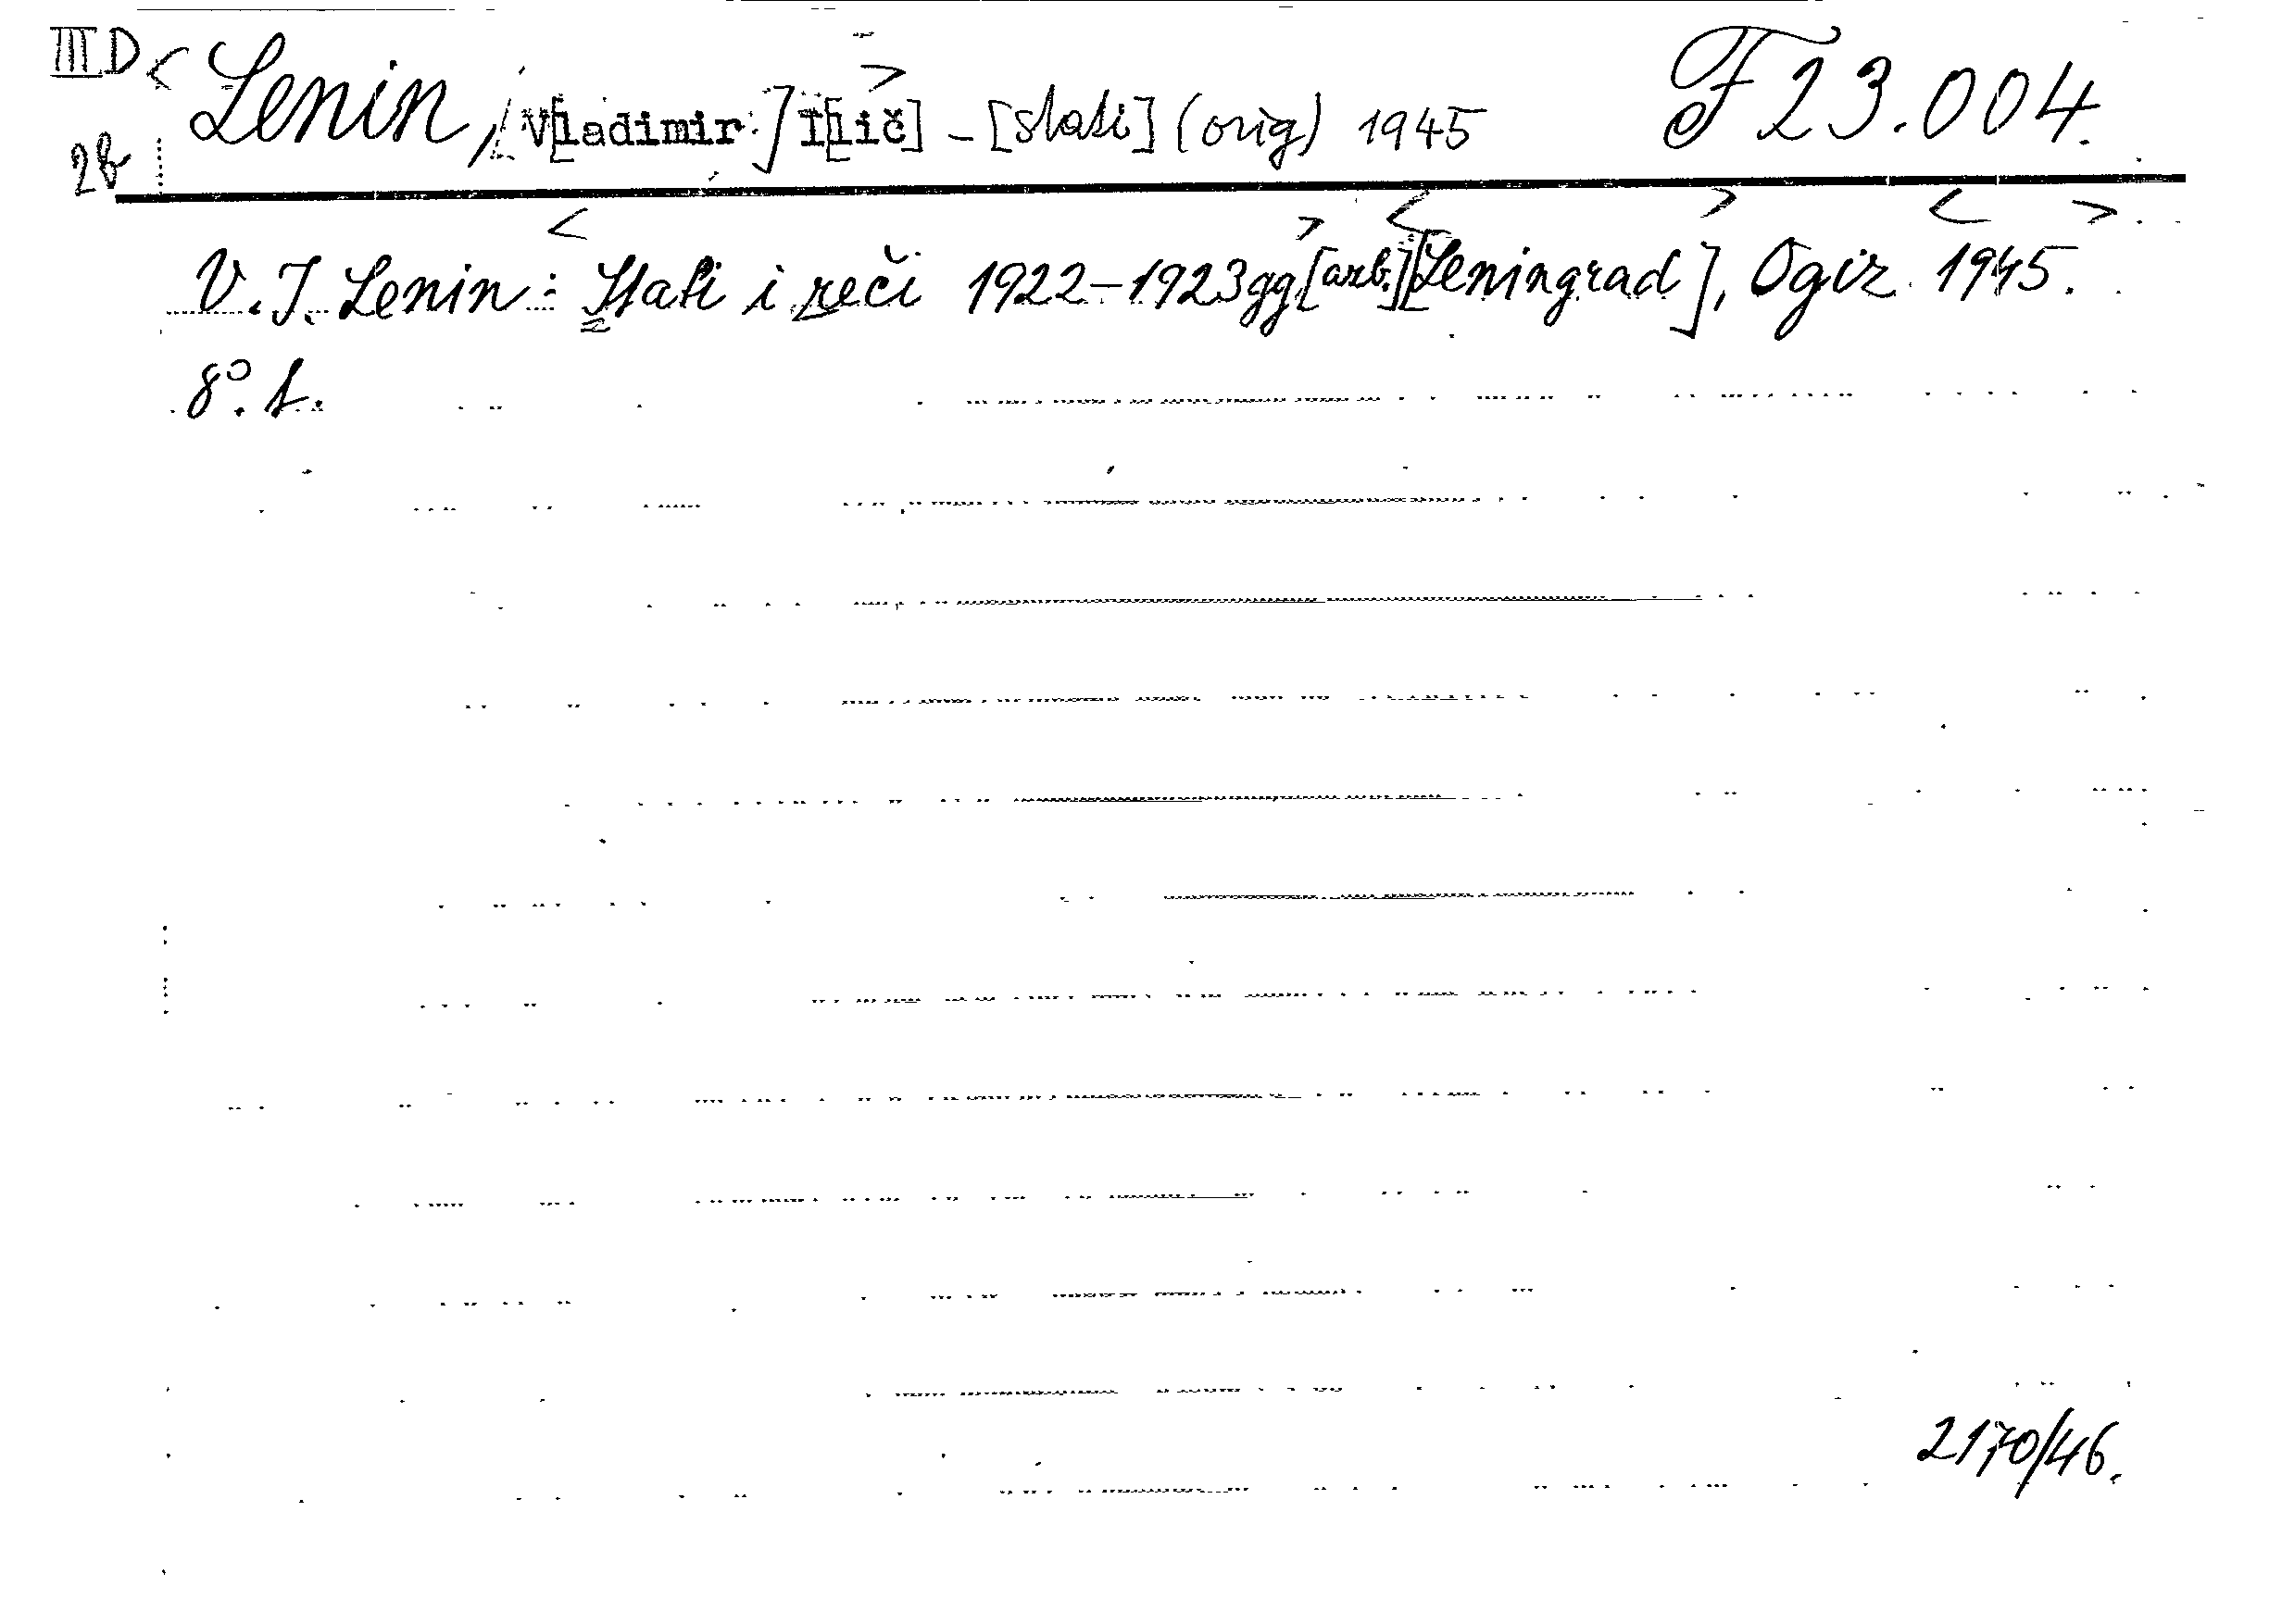 III D < Lenin, V[ladimir] I[lič] > - [stati] (orig) 1945 F 23.004.
28
V. I. Lenin: < Stati i reči 1922-1923gg > [azb.] < [Leningrad] >, Ogiz. < 1945. >
8°. t.
2170/46.